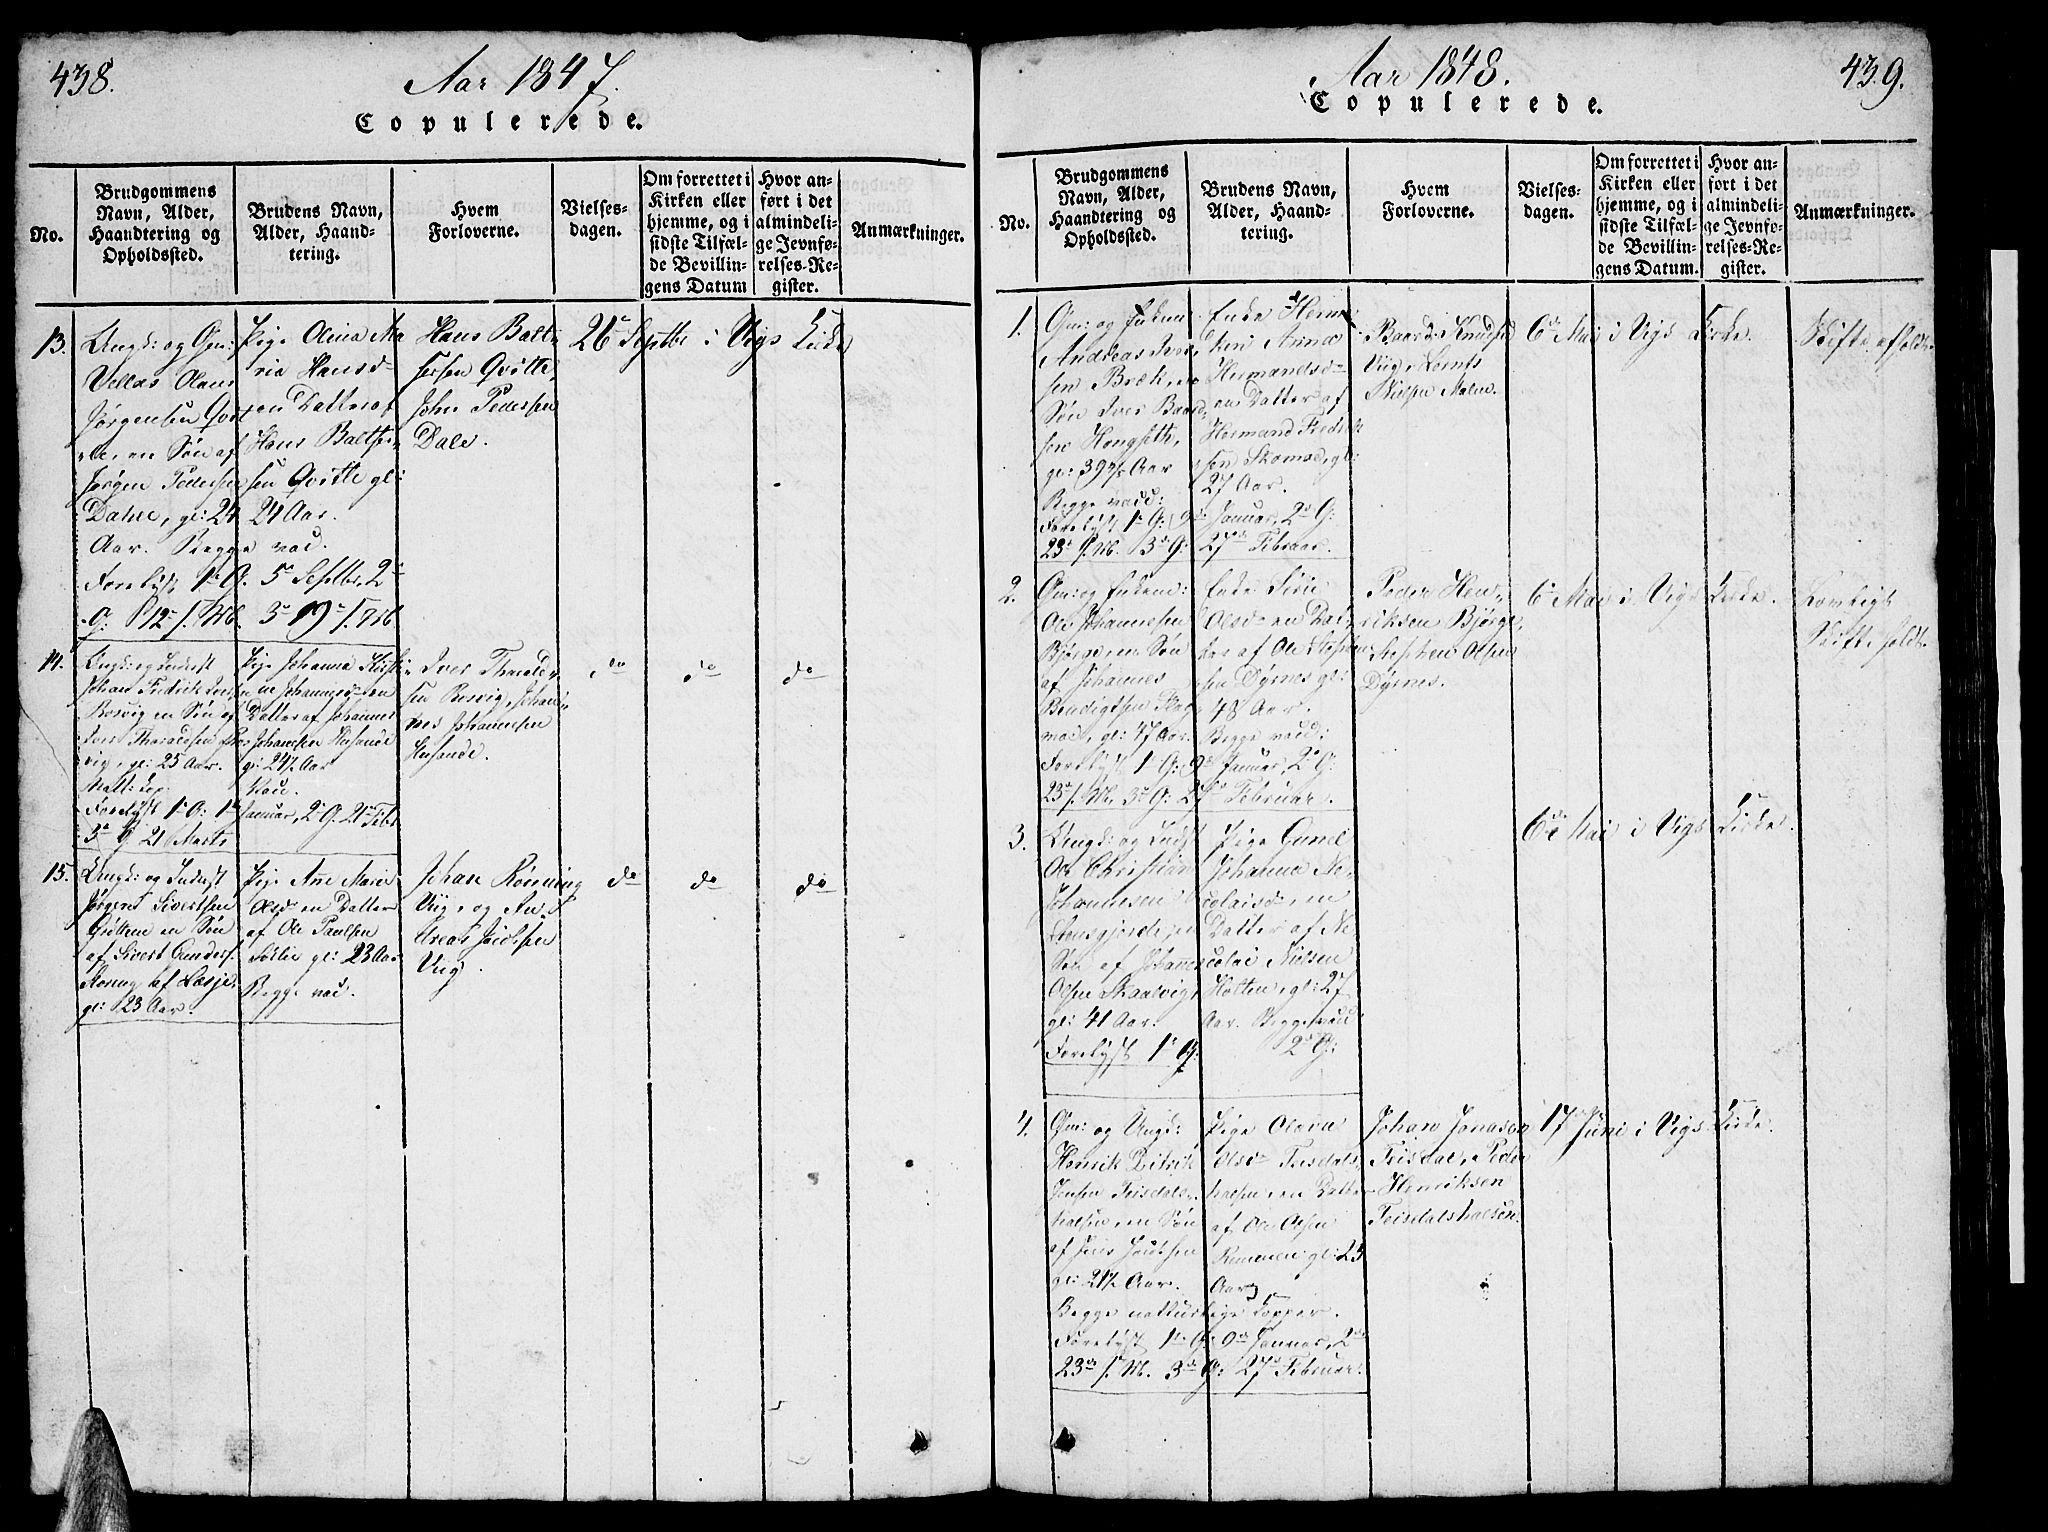 438.
Aar 1847.
Copulerede.
No.
Brudgommens
Navn, Alder,
Haandtering og
Opholdssted.
Brudens Navn,
Alder, Haand-
tering.
Hvem
Forloverne.
Vielses-
dagen.
Om forrettet i
Kirken eller
hjemme, og i
sidste Tilfæl-
de Bevillin-
gens Datum
Hvor an-
ført i det
almindeli-
ge Jevnfø-
relses-Re-
gister.
Anmærkninger.
13.
Ungk: og Gm:
Olaus
Jørgensen Qvit-
te, en Søn af
Jørgen Pedersen
Dahle, gl: 24
Aar. Begge vac.
Forelyst 1ste G. 5te Septbr, 2de
G: 12te s. M. 3de 19de s. Mb
Pige Olina Ma
ria Hansd-
en Datter af
Hans Balthser-
sen Qvitte gl:
21 Aar.
Hans Balt-
sersen Qvitte,
John Pedersen
Dale.
26de Septbr i Vigs Kirke
14.
Ungk: og Inderst
Johan Fredrik Iversen
Rosvig en Søn af
Iver Tharaldsen Ros
vig, gl: 25 Aar.
Natt: Kop.
Forelyst 1ste G: 1ste Januar, 2de G. 21de Febr
3de G 21 Marts
Pige Johanna Kirsti-
ne Johannesd- en
Datter af Johannes
Johansen Husande
gl: 24½ Aar
Vac.
Iver Tharald-
sen Rosvig, Johan-
nes Johannesen
Husande.
do
do
do
15.
Ungk: og Inderst
Jørgen Sivertsen
en Søn
af Sivert Gunders.
af Læsje,
gl: 23 Aar.
Pige Ane Marie
Olsd- en Datter
af Ole Paulsen
Sætlie gl: 23 Aar
Begge vac.
Johan Rønning
Viig, og An-
dreas Jacobsen
Viig.
do
do
do
Aar 1848.
439.
Copulerede.
No.
Brudgommens
Navn, Alder,
Haandtering og
Opholdssted.
Brudens Navn,
Alder, Haand-
tering.
Hvem
Forloverne.
Vielses-
dagen.
Om forrettet i
Kirken eller
hjemme, og i
sidste Tilfæl-
de Bevillin-
gens Datum.
Hvor an-
ført i det
almindeli-
ge Jevnfø-
relses-Re-
gister.
Anmærkninger.
1.
Gm: og Enkem
Andreas Iver-
sen Bræk, en
Søn Iver Baard-
sen Hongseth,
gl: 39½ Aar
Begge vacc:
Forelyst 1ste G: 9de Januar, 2de G:
23de s. Mb. 3de G: 27de Februar.
Enke
Anna
Hermandsd-
en Datter af
Hermand Fredrik
sen gl:
27 Aar.
Baard Knudsen
Viig,
Nielsen Malen.
6te Mai i Vigs Kirke.
Skifte afholdt.
2.
Gm: og Enkem:
Ole Johannesen
Bjørge, en Søn
af Johannes
Bendigtsen Flag
mae, gl: 47 Aar.
Forelyst 1ste G: 9de Januar, 2de G:
23de s. M, 3de G: 27de Februar.
Enke Siri
Olsd- en Dat-
ter af Ole Stephen
sen Dyrnes gl:
48 Aar.
Begge vacc:
Peder Hen-
riksen Bjørge,
Stephen Olsen
Dyrnes.
6te Mai i Vigs Kirke.
Lovligt
Skifte holdt.
3.
Ungk: og Inderst
Ole Christian
Johannesen
Stensgjerde, en
Søn af Johannes
Olsen Skaalvig,
gl: 41 Aar.
Forelyst 1ste G: 2de G:
Pige Gunel
Johanna Ni-
colaisd-, en
Datter af Ni
colai Nielsen
Holten, gl: 27
Aar. Begge vacc
6te Mai i Vigs Kirke.
4.
Gm: og Ungk:
Henrik Didrik
Jensen Teisdals-
halsen, en Søn
af Jens Jacobsen
gl: 21½ Aar.
Begge naturlige Kopper.
Forelyst 1ste G: 9de Januar, 2de
23de s. M. 3de G: 27de Februar.
Pige
Olsd- Teisdals-
halsen, en Datter
af Ole Olsen
Rimmen gl: 25
Aar
Johan Jonasen
Teisdal, Peder
Henriksen
Teisdalshalsen.
17de Juni i Vigs Kirke.